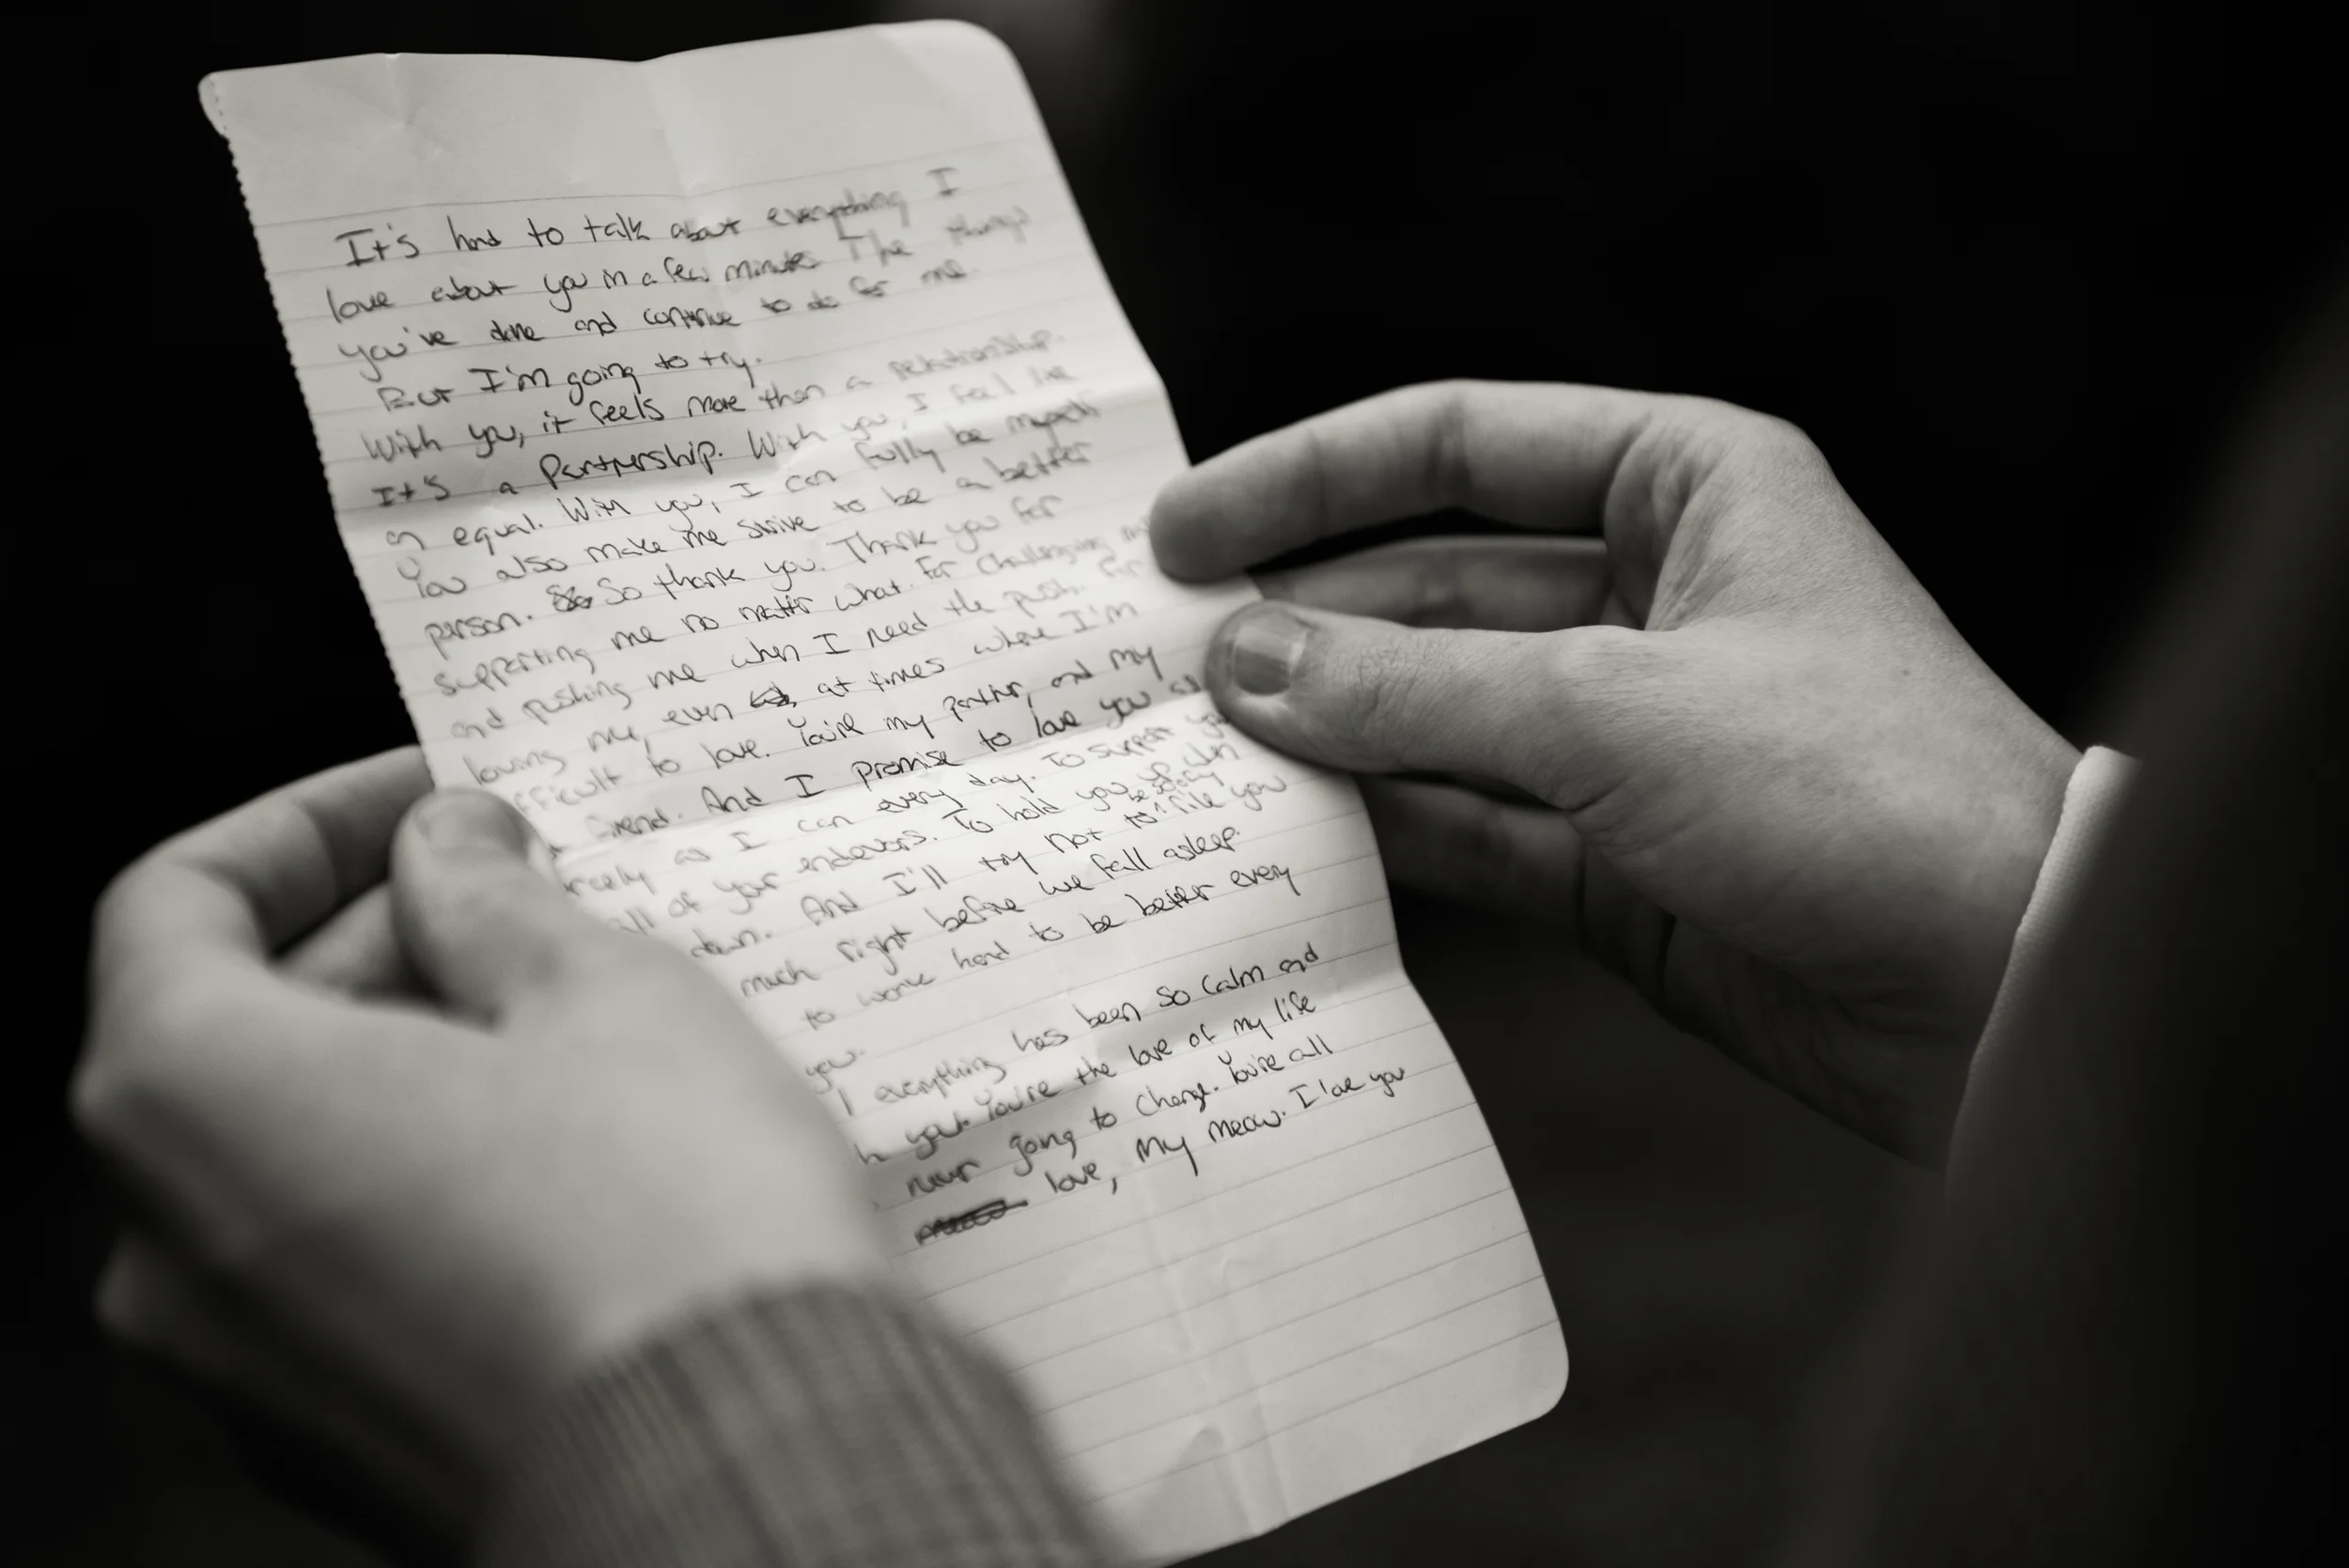 It's hard to talk about everything I
love about you in a few minutes The things
you've done and continue to do for me
But I'm going to try.
With you, it feels more than a relationship.
It's a Partnership. With you, I feel like
an equal. With you, I can fully be myself
You also make me strive to be a better
person. So thank you. Thank you for
supporting me no matter what. For challenging
and pushing me when I need the push. For
loving me, even at times where I'm
fficult to love. You're my partner, and my
friend. And I promise to love you as
rcely as I can every day. To support you
all of your endevors. To hold you up when
down. And I'll try not to be so
much right before we fall asleep.
to work hard to be better every
you.
everything has been so calm and
h you. You're the love of my life
never going to change. You're all
love, my meow. I love you